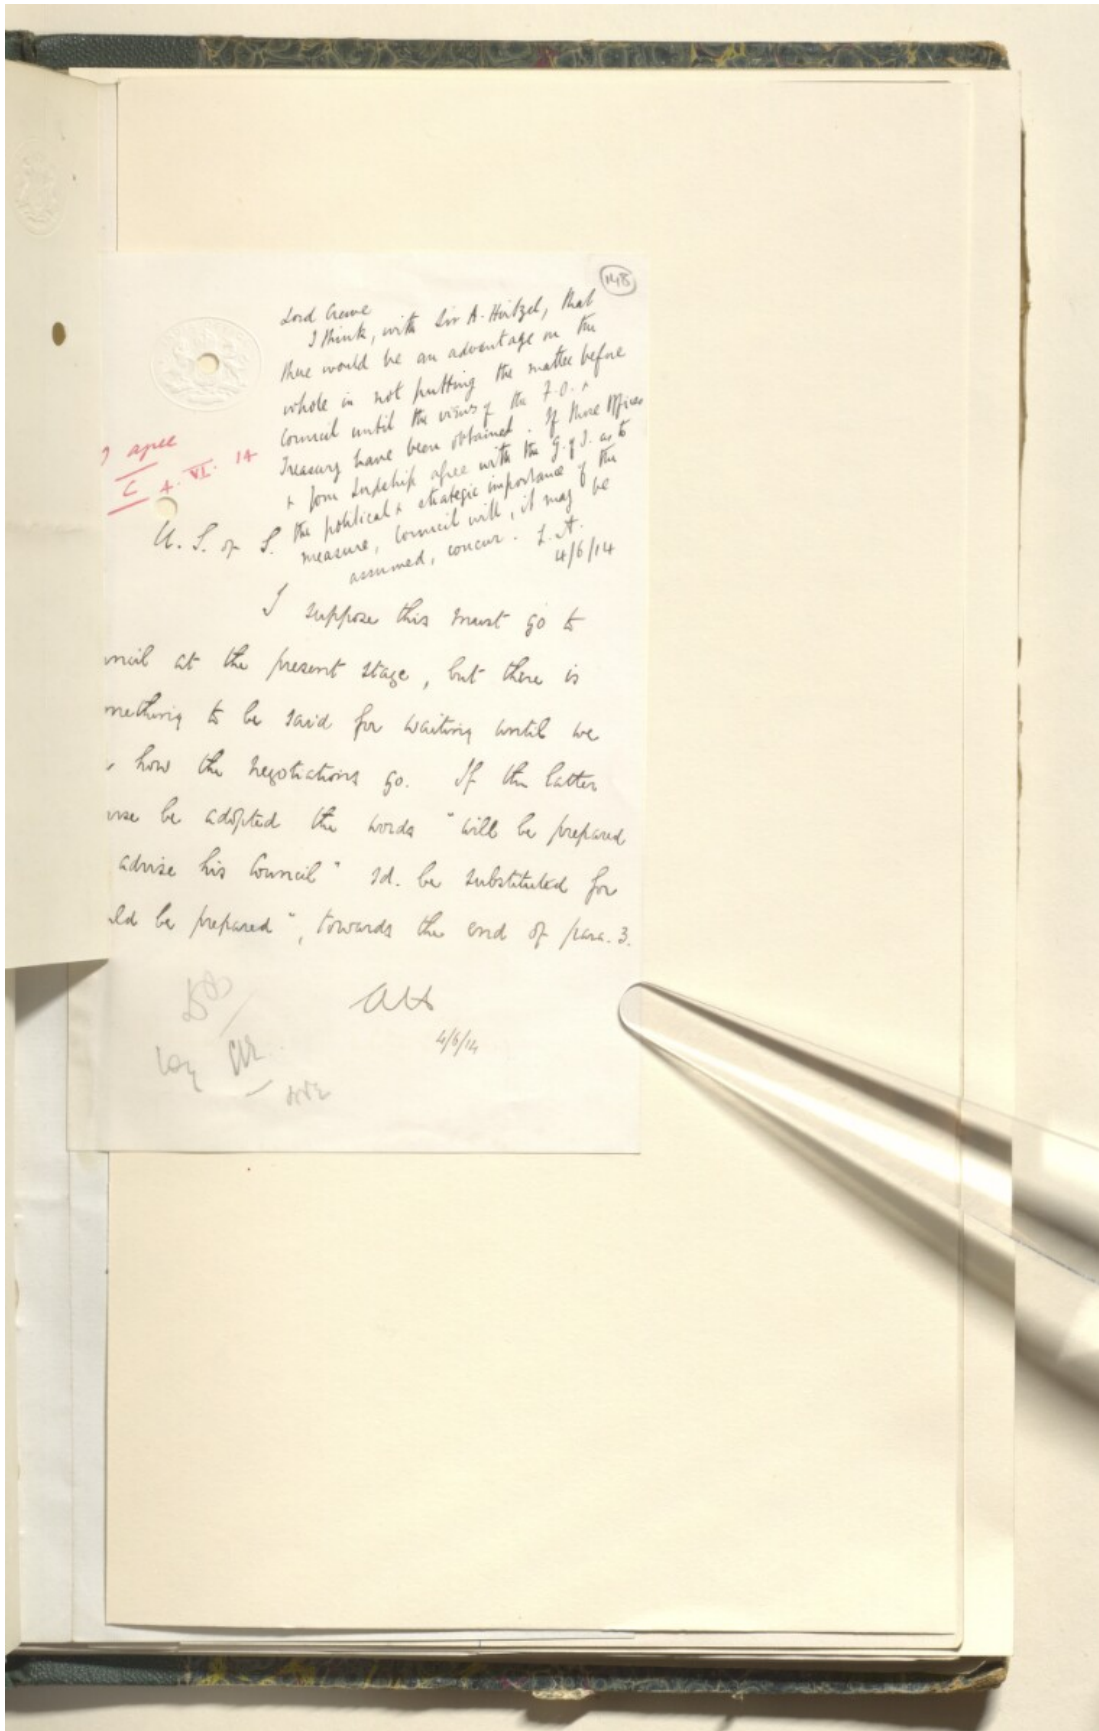 148
Lord Crewe
I think, with Sir A. Hirtzel, that
there would be an advantage on the
whole in not putting the matter before
Council until the views of the F.O. +
Treasury have been obtained. If those Offices
+ your Lordship agree with the G. of I. as to
the political + strategic importance of the
measure, Council will, it may be
assumed, concur.
4/6/14
I agree
C 4. VI. 14
U. S. of S.
I suppose this must go to
uncil at the present stage, but there is
mething to be said for waiting until we
how the negotiations go. If the latter
rse be adopted the words "will be prepared
advise his Council" sd. be substituted for
ld be prepared", towards the end of para. 3.
AH
4/6/14